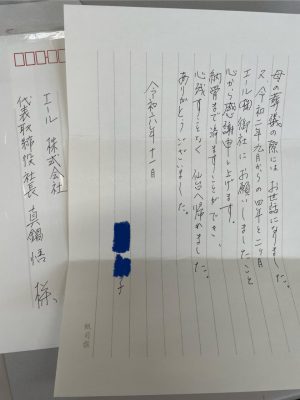 母の葬儀の際には お世話になりました。
又、令和二年九月からの四年と二ヶ月
エール㈱御社にお願いしましたこと
心から感謝申し上げます。
納骨まで済ますことができ、
心残すことなく 仙台へ帰れました。
ありがとうございました。
令和六年十一月
子
エール 株式会社
代表取締役社長 真鍋 悟 様